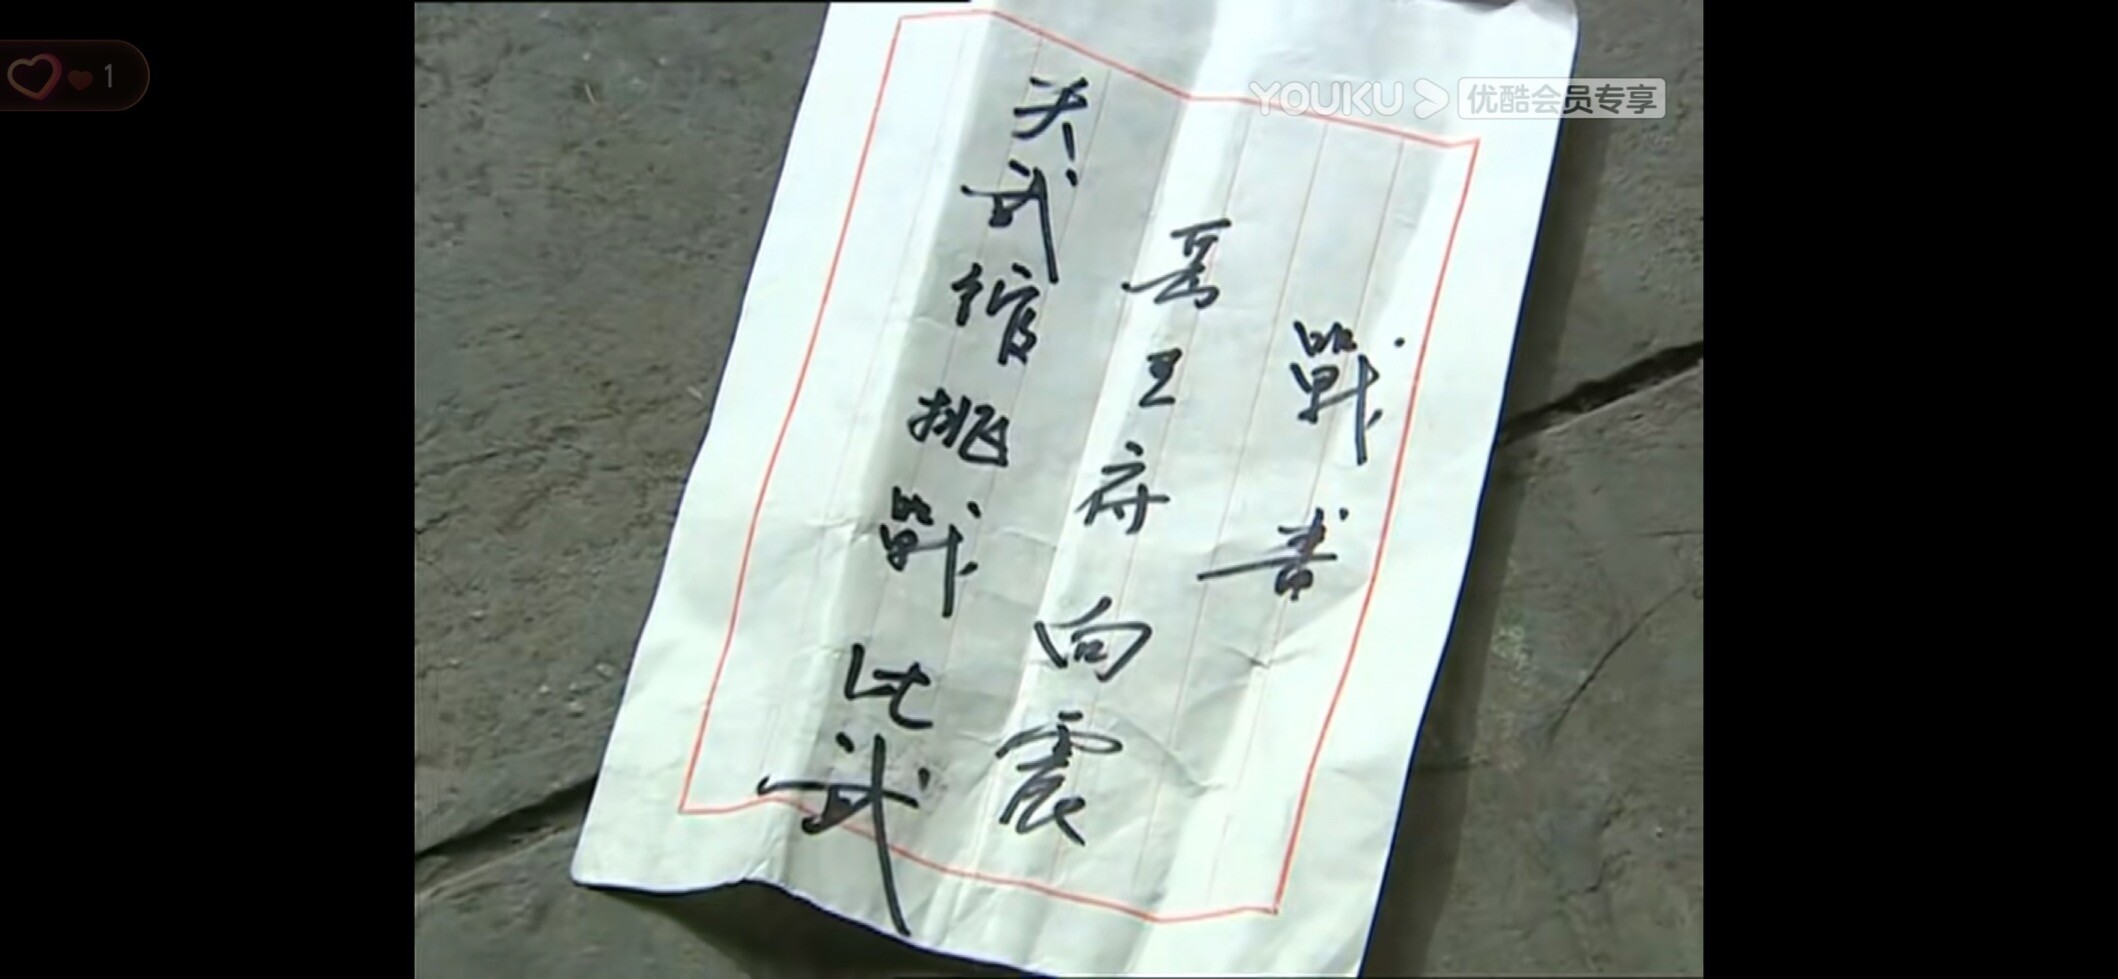 戰書
王府向震
关武館挑戰比武
YOUKU 优酷会员专享
1